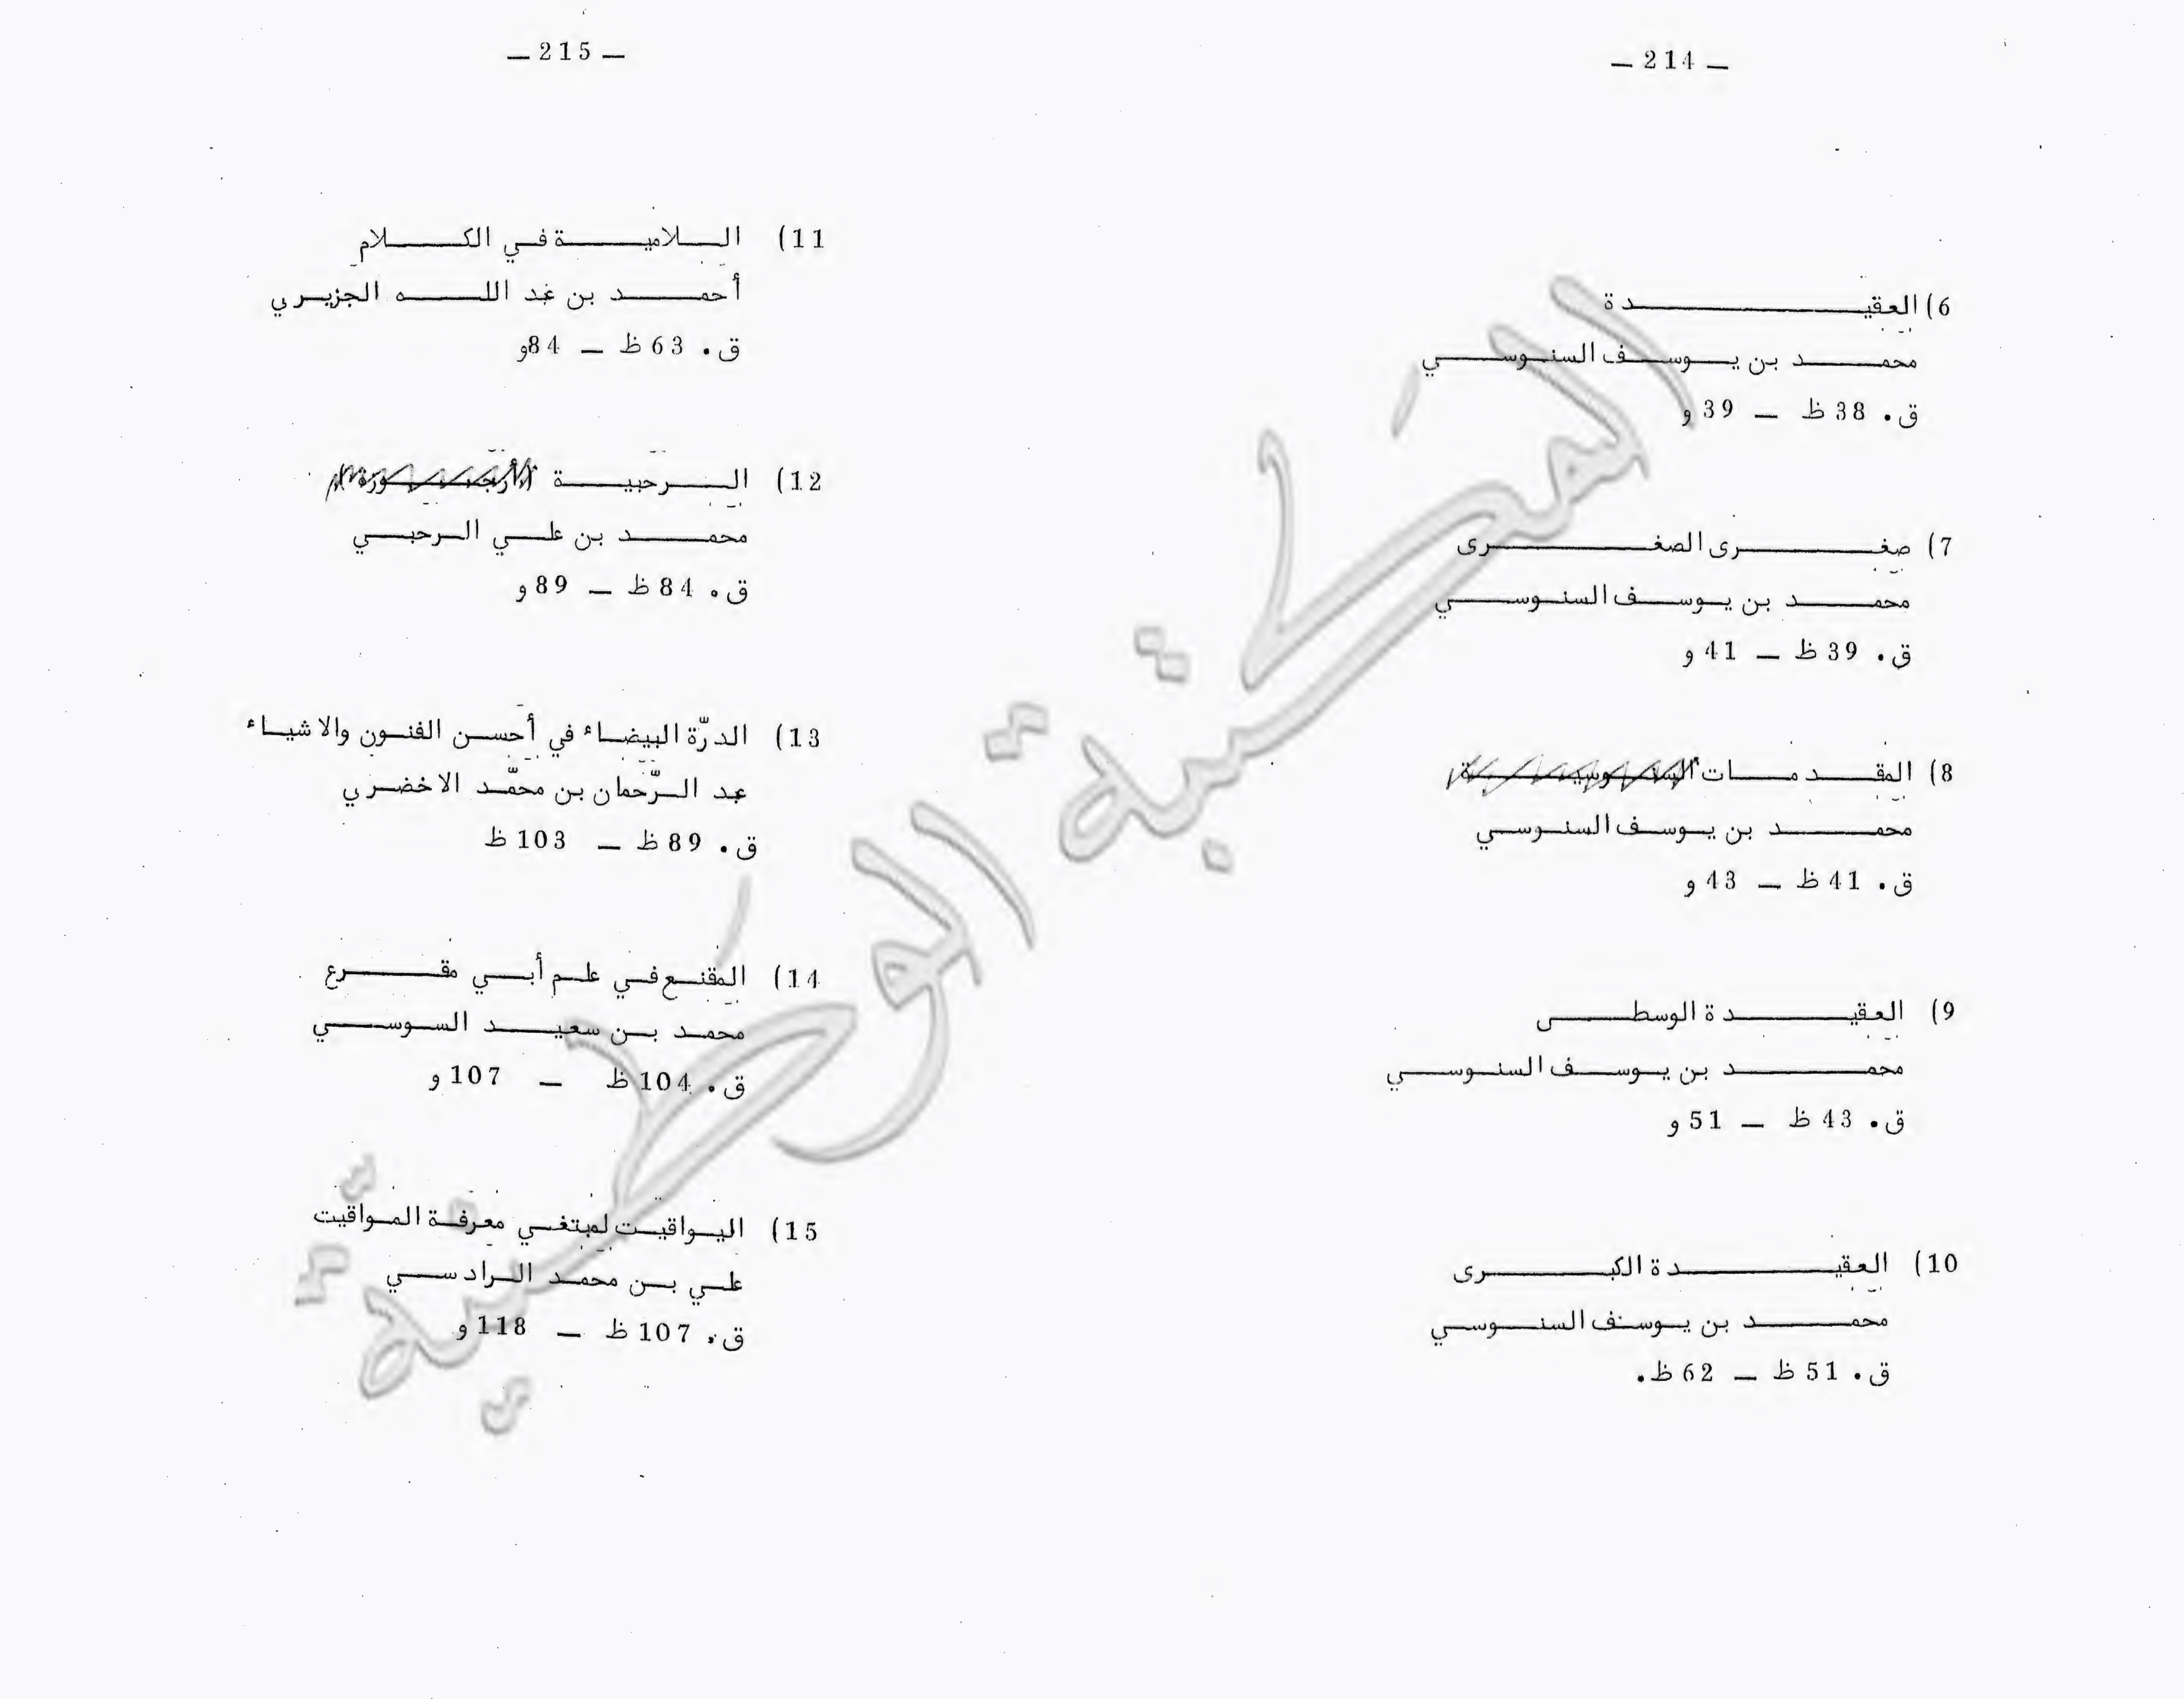 — 214 —
6) العقيدة
محمد بن يوسف السنوسي
ق. 38 ظ — 39 و
7) صغرى الصغرى
محمد بن يوسف السنوسي
ق. 39 ظ — 41 و
8) المقدمات
محمد بن يوسف السنوسي
ق. 41 ظ — 43 و
9) العقيدة الوسطى
محمد بن يوسف السنوسي
ق. 43 ظ — 51 و
10) العقيدة الكبرى
محمد بن يوسف السنوسي
ق. 51 ظ — 62 ظ.
— 215 —
11) اللامية في الكلام
أحمد بن عبد الله الجزيري
ق. 63 ظ — 84 و
12) الرحبية
محمد بن علي الرحبي
ق. 84 ظ — 89 و
13) الدرّة البيضاء في أحسن الفنون والاشياء
عبد الرّحمان بن محمّد الاخضري
ق. 89 ظ — 103 ظ
14) المقنع في علم أبي مقرع
محمد بن سعيد السوسي
ق. 104 ظ — 107 و
15) اليواقيت لمبتغي معرفة المواقيت
علي بن محمد الرادسي
ق. 107 ظ — 118 و
المكتبة الوطنية